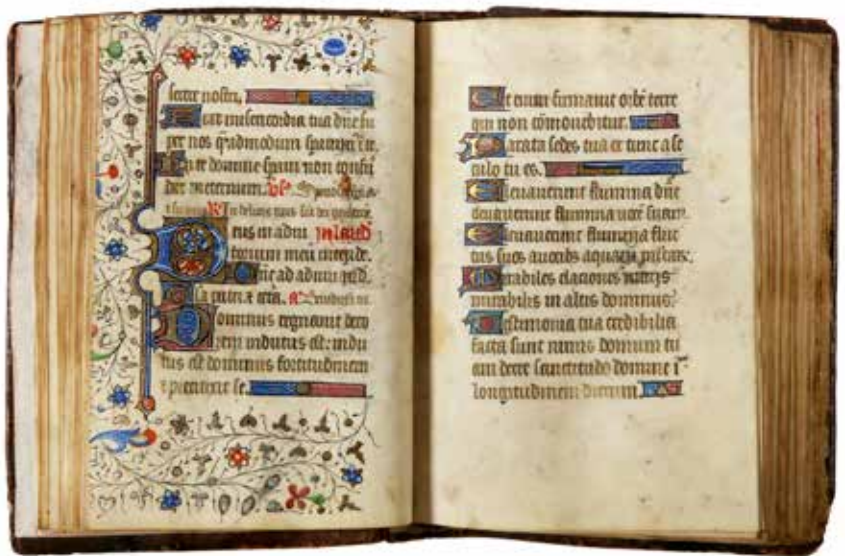 sectie nostri,
iat misericordia tua dñe su
per nos q̃admodum sperauim⁹ i te.
n te domine speraui non confũ
dar in eternum. v̉s.
eus in adiu In laud
torium meũ intende.
ne ad adiuuãdũ
ominus regnauit deco
rem indutus est: indu
tus est dominus fortitudinem
⁊ precinxit se.
Et enim firmauit orbẽ terre
qui non cõmouebitur.
arata sedes tua ex tunc a se
culo tu es.
leuauerunt flumina dñe
eleuauerunt flumina vocẽ suam.
leuauerunt flumina fluc
tus suos a vocibs aquarũ multarũ.
irabiles elaciones maris
mirabilis in altis dominus.
estimonia tua credibilia
facta sunt nimis domum tu
am decet sanctitudo domine ĩ
longitudinem dierum.